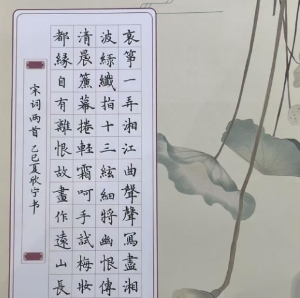 哀筝一弄湘江曲聲聲寫盡湘
波緑纖指十三絃細將幽恨傳
清晨簾幕捲輕霜呵手試梅妝
都緣自有離恨故畫作遠山長
宋词两首 乙巳夏欣宁书